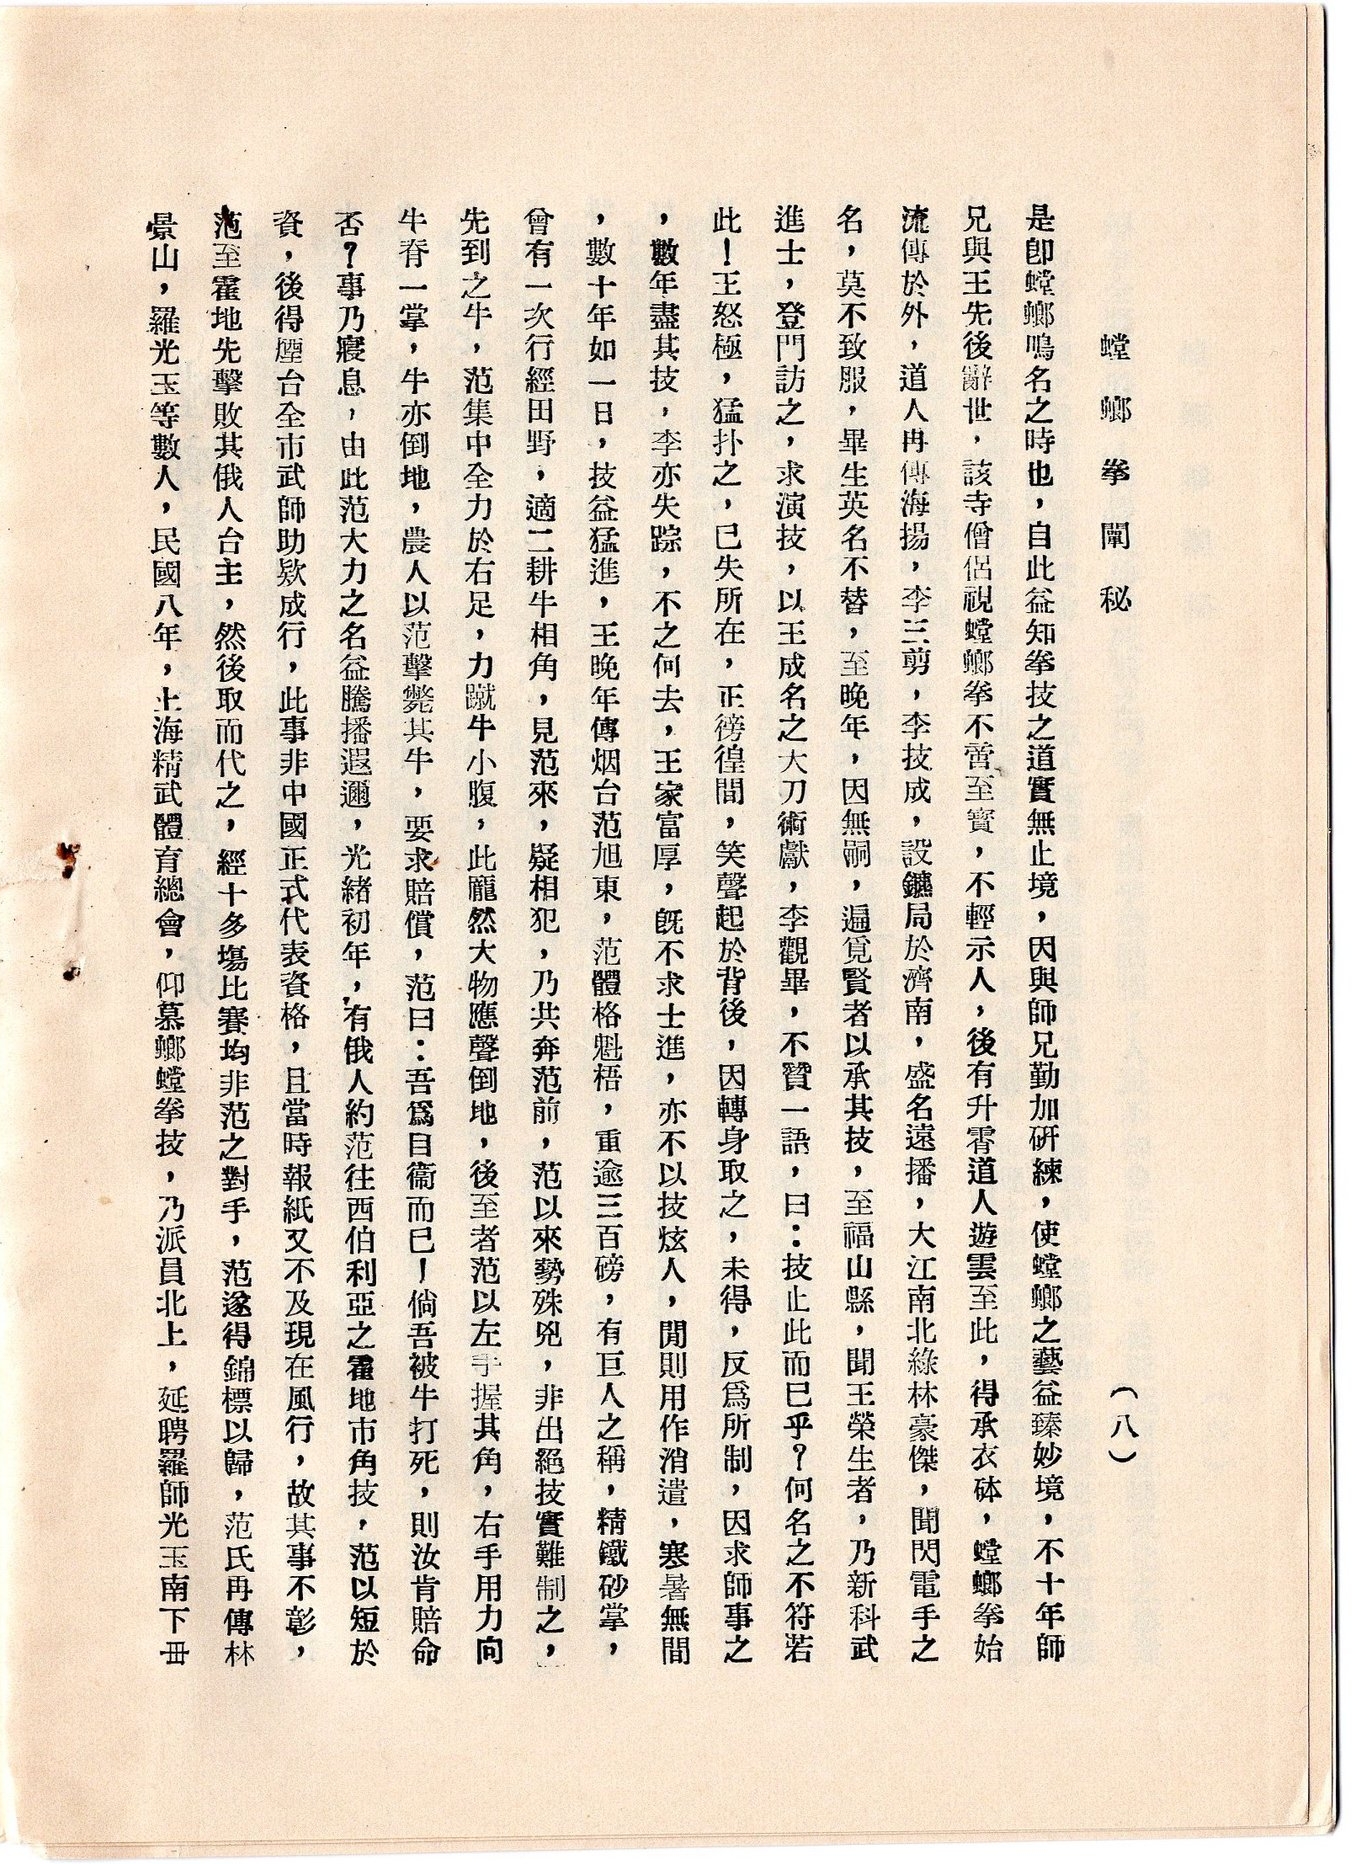 螳螂拳闡秘
(八)
是卽螳螂鳴名之時也，自此益知拳技之道實無止境，因與師兄勤加硏練，使螳螂之藝益臻妙境，不十年師
兄與王先後辭世，該寺僧侶視螳螂拳不啻至寳，不輕示人，後有升霄道人遊雲至此，得承衣砵，螳螂拳始
流傳於外，道人再傳海揚，李三剪，李技成，設鑣局於濟南，盛名遠播，大江南北綠林豪傑，聞閃電手之
名，莫不致服，畢生英名不替，至晚年，因無嗣，遍覓賢者以承其技，至福山縣，聞王榮生者，乃新科武
進士，登門訪之，求演技，以王成名之大刀術獻，李觀畢，不贊一語，曰：技止此而已乎？何名之不符若
此！王怒極，猛扑之，已失所在，正徬徨間，笑聲起於背後，因轉身取之，未得，反爲所制，因求師事之
，數年盡其技，李亦失踪，不之何去，王家富厚，旣不求士進，亦不以技炫人，閒則用作消遣，寒暑無間
，數十年如一日，技益猛進，王晚年傳烟台范旭東，范體格魁梧，重逾三百磅，有巨人之稱，精鐵砂掌，
曾有一次行經田野，適二耕牛相角，見范來，疑相犯，乃共奔范前，范以來勢殊兇，非出絕技實難制之，
先到之牛，范集中全力於右足，力蹴牛小腹，此龐然大物應聲倒地，後至者范以左手握其角，右手用力向
牛脊一掌，牛亦倒地，農人以范擊斃其牛，要求賠償，范曰：吾爲自衞而已！倘吾被牛打死，則汝肯賠命
否？事乃寢息，由此范大力之名益騰播遐邇，光緒初年，有俄人約范往西伯利亞之霍地市角技，范以短於
資，後得煙台全市武師助欵成行，此事非中國正式代表資格，且當時報紙又不及現在風行，故其事不彰，
范至霍地先擊敗其俄人台主，然後取而代之，經十多塲比賽均非范之對手，范遂得錦標以歸，范氏再傳林
景山，羅光玉等數人，民國八年，上海精武體育總會，仰慕螂螳拳技，乃派員北上，延聘羅師光玉南下毌